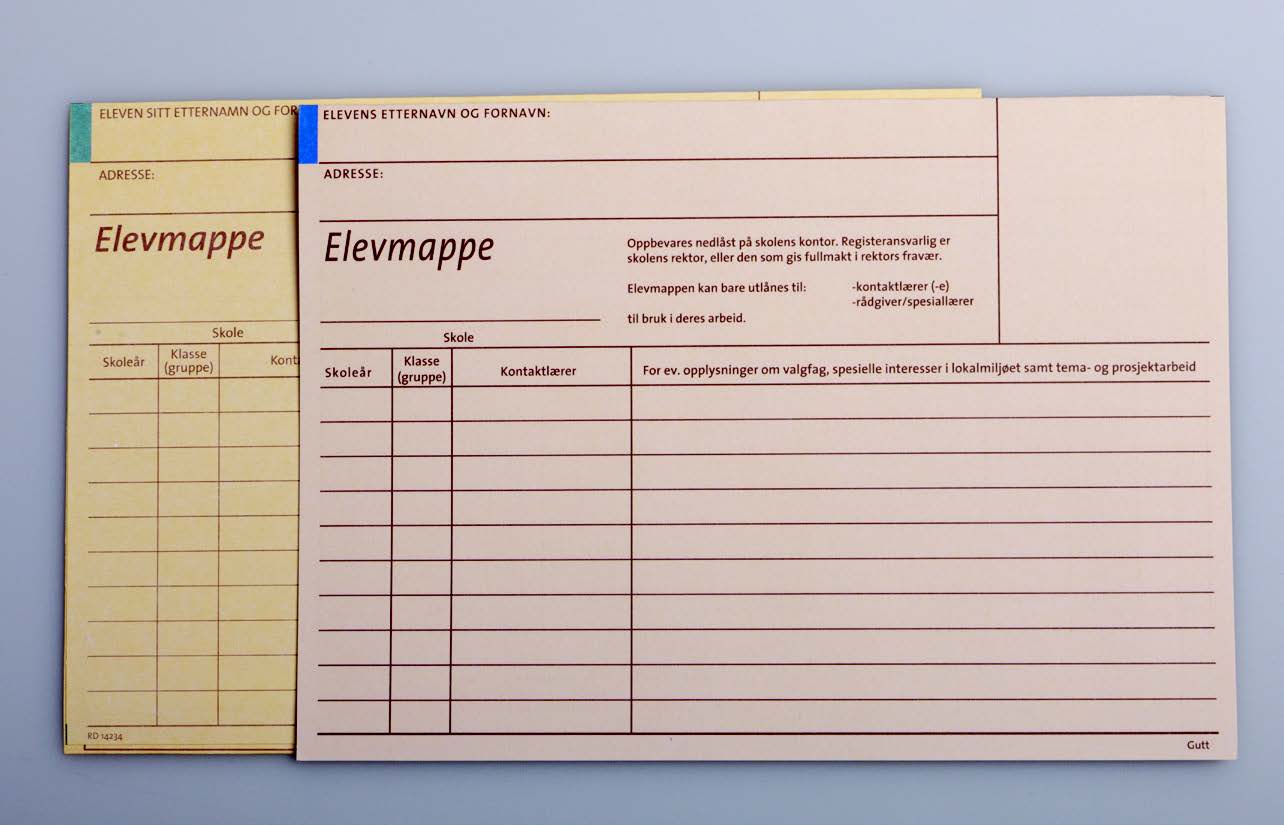 ELEVEN SITT ETTERNAMN OG FOR
ADRESSE:
Elevmappe
Skole
Skoleår
Klasse
(gruppe)
Kont
RD 14234
ELEVENS ETTERNAVN OG FORNAVN:
ADRESSE:
Elevmappe
Oppbevares nedlåst på skolens kontor. Registeransvarlig er
skolens rektor, eller den som gis fullmakt i rektors fravær.
Elevmappen kan bare utlånes til: -kontaktlærer (-e)
-rådgiver/spesiallærer
til bruk i deres arbeid.
Skole
Skoleår
Klasse
(gruppe)
Kontaktlærer
For ev. opplysninger om valgfag, spesielle interesser i lokalmiljøet samt tema- og prosjektarbeid
Gutt